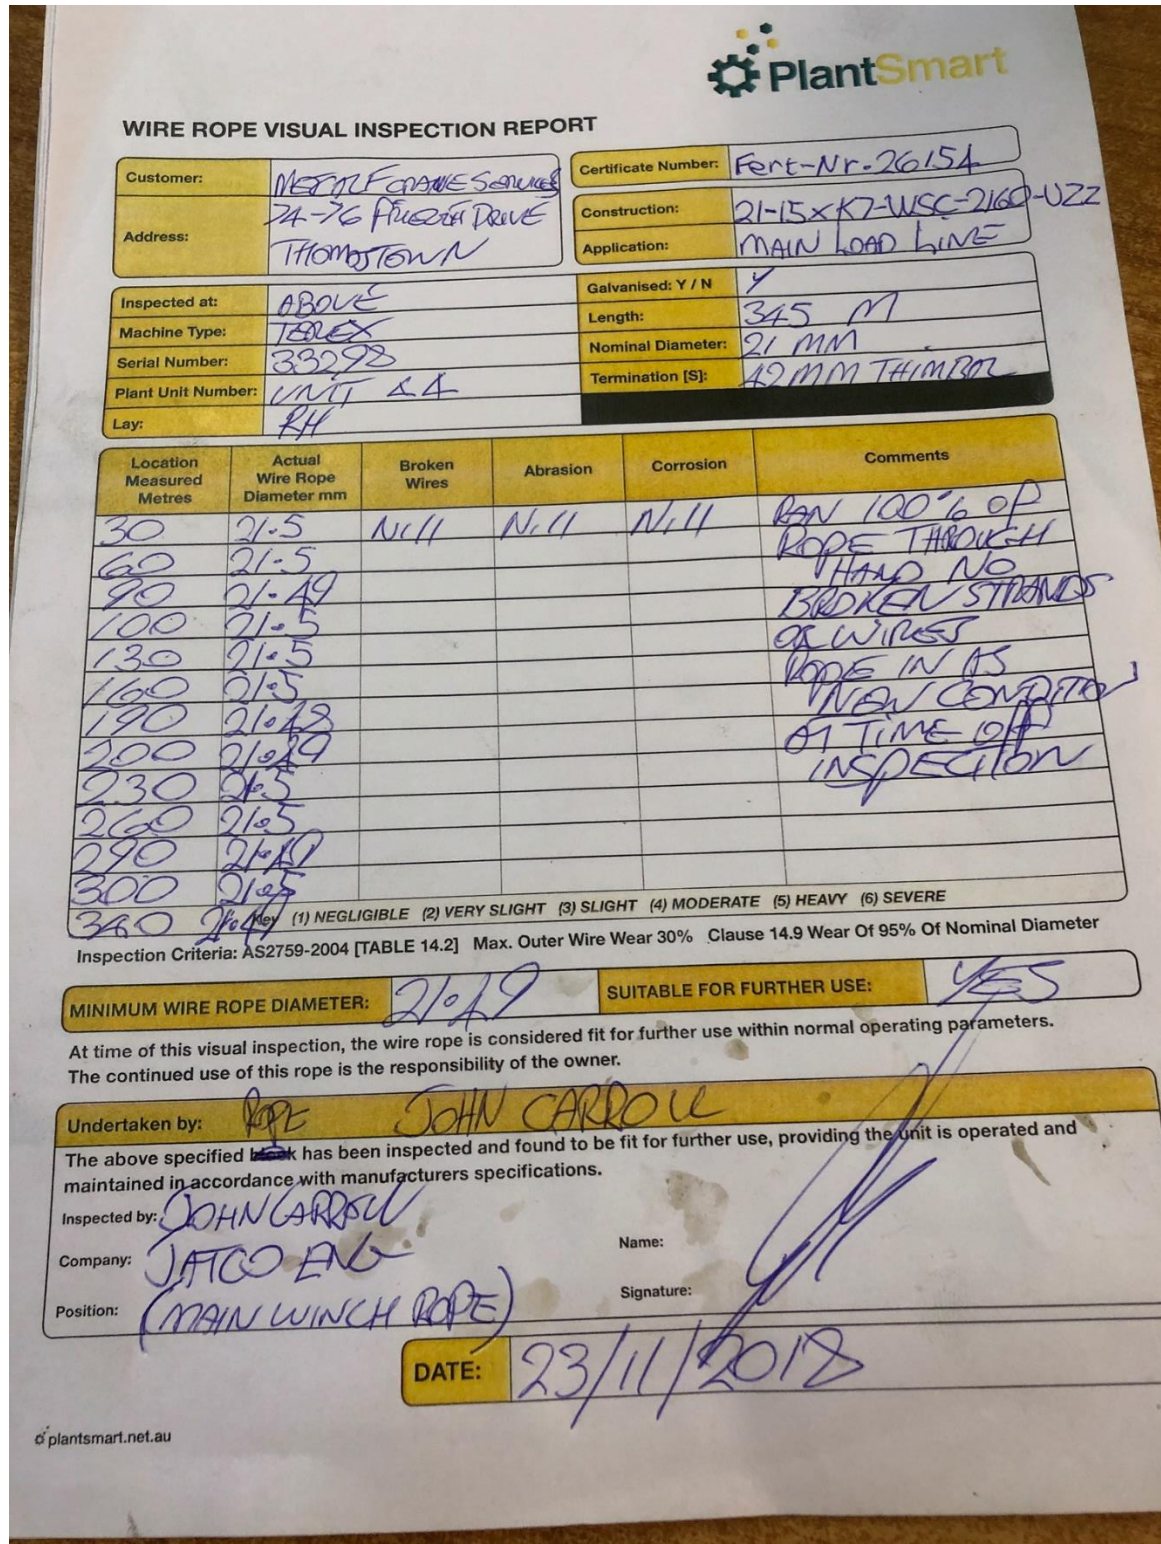 PlantSmart
WIRE ROPE VISUAL INSPECTION REPORT
Customer: CRANE SERVICES
Address: 74-76 DRIVE
THOMASTOWN
Certificate Number: Fert-Nr. 26154
Construction: 21-15xK7-WSC-2160-UZZ
Application: MAIN LOAD LINE
Inspected at: ABOVE
Machine Type: TEREX
Serial Number: 33298
Plant Unit Number: UNIT 44
Lay: RH
Galvanised: Y / N Y
Length: 345 M
Nominal Diameter: 21 MM
Termination [S]: 42 MM THIMBOL
Location Measured Metres Actual Wire Rope Diameter mm Broken Wires Abrasion Corrosion Comments
30 21.5 Nill Nill Nill RAN 100% OF
60 21.5 ROPE THROUGH
90 21.49 HAND NO
100 21.5 BROKEN STRANDS
130 21.5 OR WIRES
160 21.5 ROPE IN AS
190 21.48 NEW CONDITION
200 21.49 AT TIME OFF
230 21.5 INSPECTION
260 21.5
290 21.49
300 21.5
340
Key (1) NEGLIGIBLE (2) VERY SLIGHT (3) SLIGHT (4) MODERATE (5) HEAVY (6) SEVERE
Inspection Criteria: AS2759-2004 [TABLE 14.2] Max. Outer Wire Wear 30% Clause 14.9 Wear Of 95% Of Nominal Diameter
MINIMUM WIRE ROPE DIAMETER: 21.49 SUITABLE FOR FURTHER USE: YES
At time of this visual inspection, the wire rope is considered fit for further use within normal operating parameters.
The continued use of this rope is the responsibility of the owner.
Undertaken by: ROPE JOHN CARROLL
The above specified has been inspected and found to be fit for further use, providing the unit is operated and
maintained in accordance with manufacturers specifications.
Inspected by: JOHN CARROLL
Company: JATCO ENG
Position: (MAIN WINCH ROPE)
Name:
Signature:
DATE: 23/11/2018
plantsmart.net.au